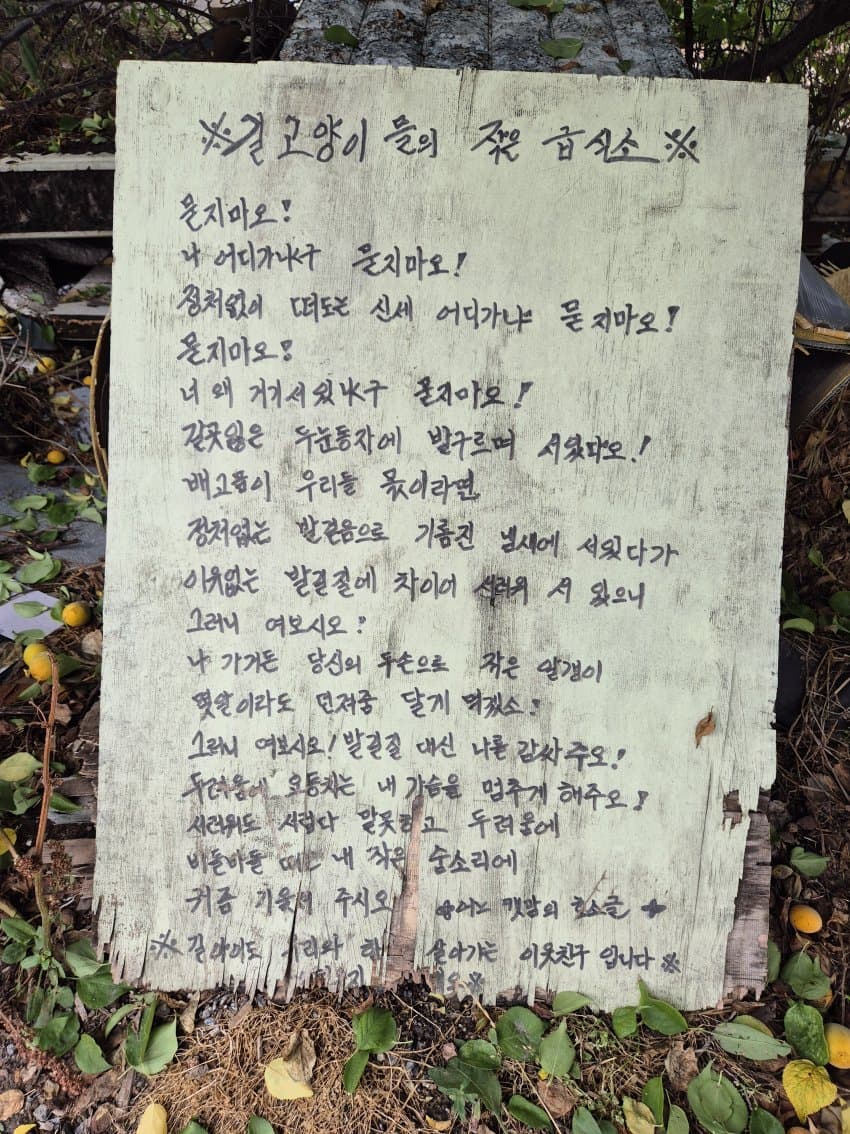 ※길고양이들의 작은 급식소※
묻지마오!
나 어디가냐구 묻지마오!
정처없이 떠도는 신세 어디가냐 묻지마오!
묻지마오!
너 왜 거기서있냐구 묻지마오!
갈곳잃은 두눈동자에 발구르며 서있다오!
배고픔이 우리들 몫이라면
정처없는 발걸음으로 기름진 냄새에 서있다가
이유없는 발길질에 차이어 서러워 서 있으니
그러니 여보시오!
나 가거든 당신의 두손으로 작은 알갱이
몇알이라도 먼저줌 달게 먹겠소!
그러니 여보시오! 발길질 대신 나를 감싸주오!
두려움에 요동치는 내 가슴을 멈추게 해주오!
서러워도 서럽다 말못하고 두려움에
비틀비틀 떼는 내 작은 숨소리에
귀좀 기울여 주시오 어느 캣맘의 호소글
※길아이도 우리와 살아가는 이웃친구 입니다※